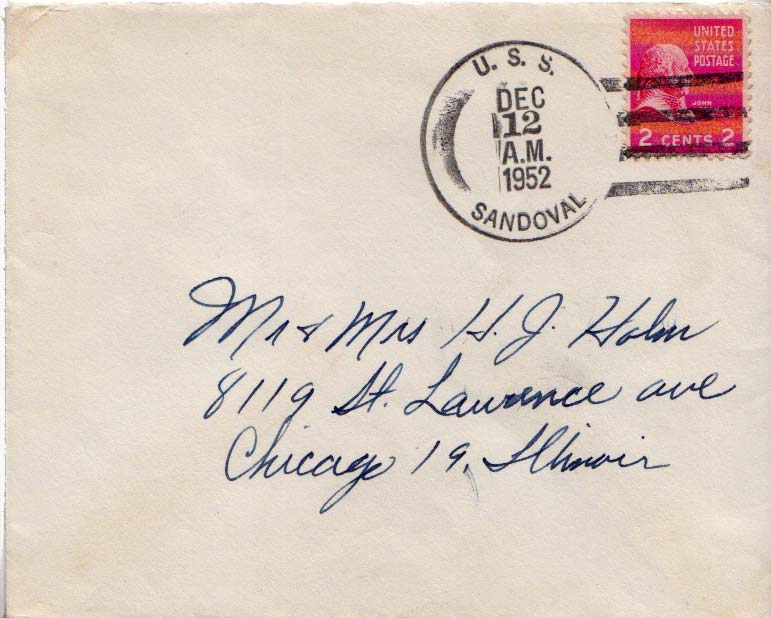 U. S. S.
DEC
12
A.M.
1952
SANDOVAL
UNITED
STATES
POSTAGE
JOHN
2 CENTS 2
Mr & Mrs H. J. Holm
8119 St. Lawrence ave
Chicago 19, Illinois